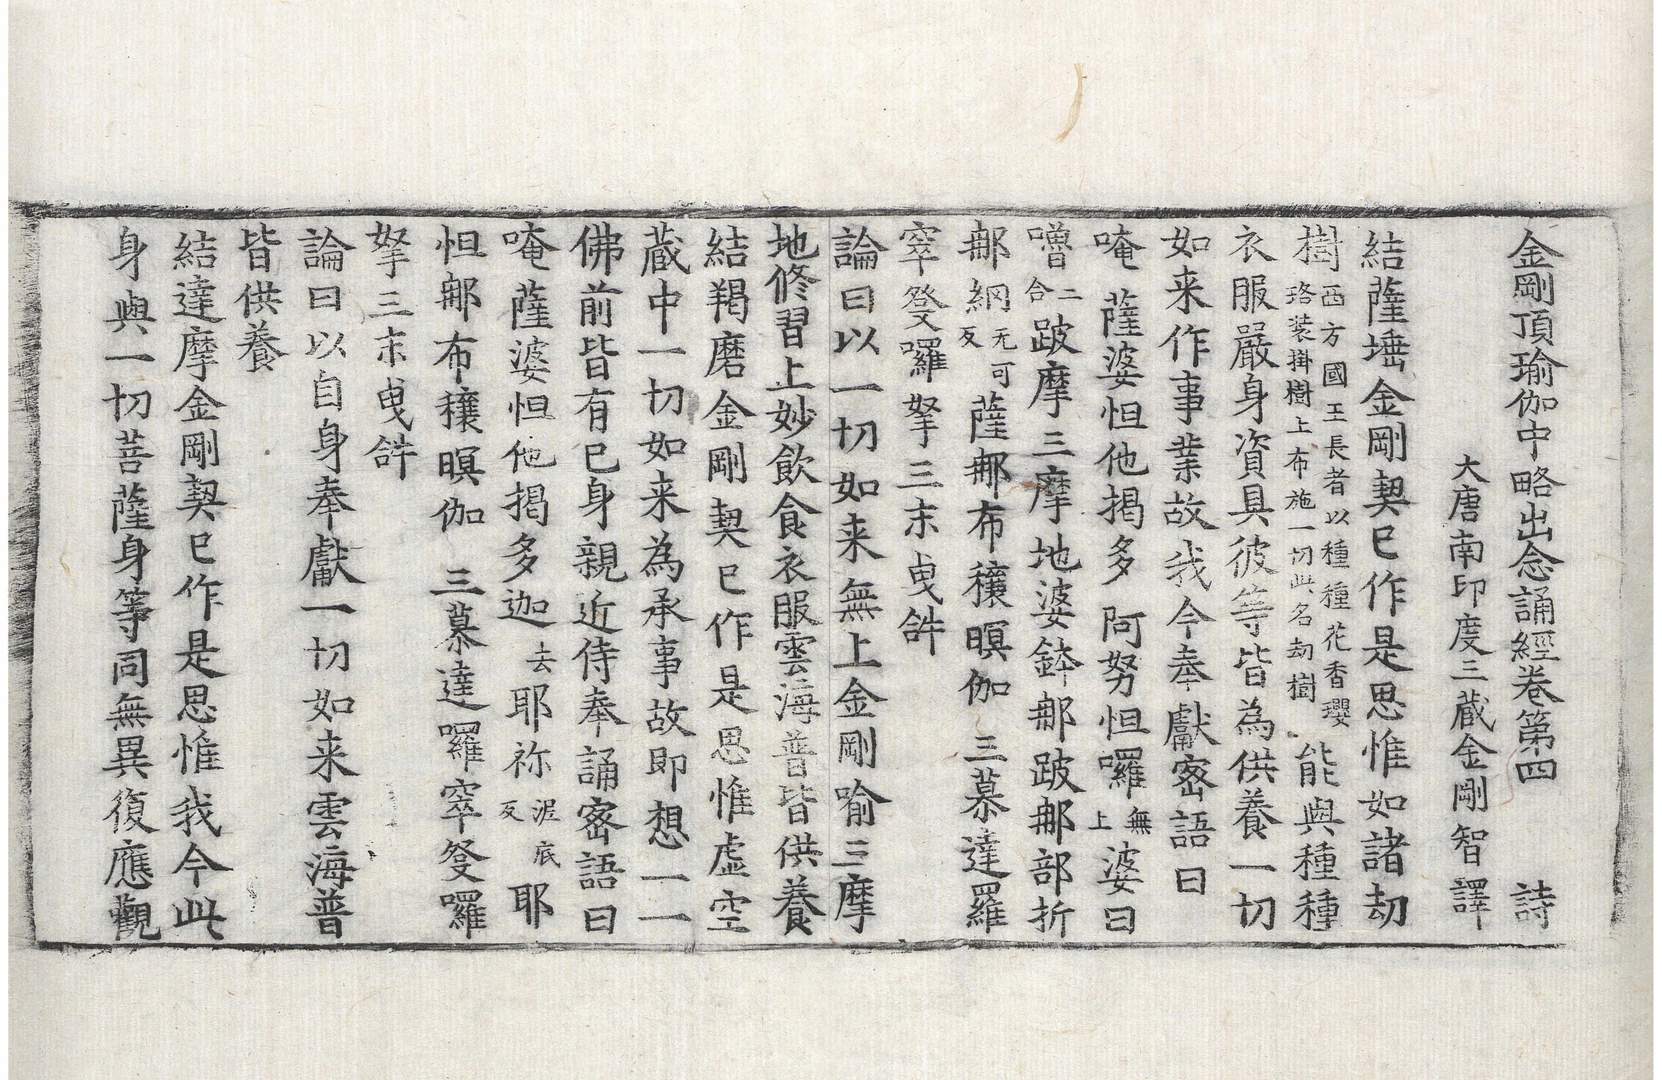 金剛頂瑜伽中略出念誦經卷第四　詩
大唐南印度三藏金剛智譯
結薩埵金剛契已作是思惟如諸劫
樹西方國王長者以種種花香瓔珞裝掛樹上布施一切此名劫樹能與種種
衣服嚴身資具彼等皆為供養一切
如来作事業故我今奉獻密語曰
唵薩婆怛他揭多阿努怛囉無上婆曰
嚕二合跛摩三摩地婆鉢郍跛郍部折
郍網无可反薩郍布穰暝伽三慕達羅
窣發囉拏三末曳䤈
論曰以一切如来無上金剛喻三摩
地修習上妙飲食衣服雲海普皆供養
結羯磨金剛契已作是思惟虛空
藏中一切如来為承事故即想一一
佛前皆有已身親近侍奉誦密語曰
唵薩婆怛他揭多迦去耶祢泥底反耶
怛郍布穰暝伽三慕達囉窣發囉
拏三末曳䤈
論曰以自身奉獻一切如来雲海普
皆供養
結達摩金剛契已作是思惟我今此
身與一切菩薩身等同無異復應觀